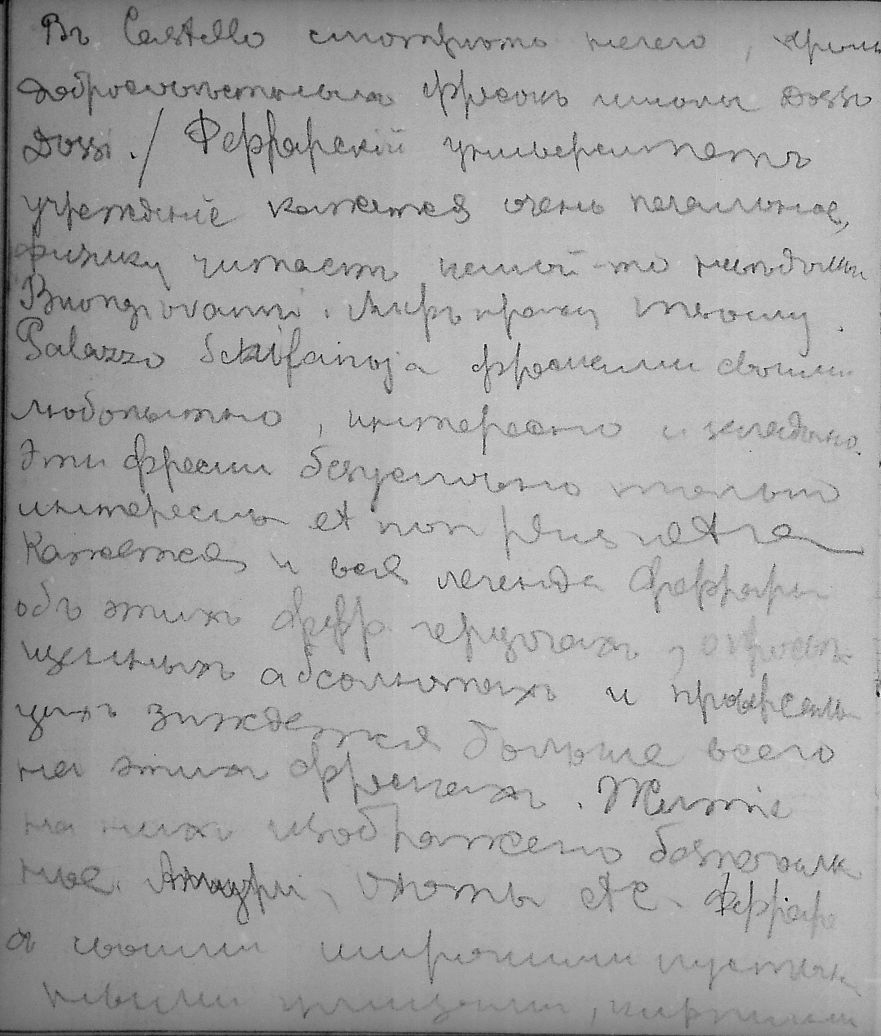 Въ Castello смотрѣть нечего, кромѣ
добросовѣстныхъ фресокъ школы Dosso
Dossi. / Феррарскій университетъ
учрежденіе кажется очень печальное,
физику читаетъ какой-то невѣдомый
Buongiovanni. Миръ праху твоему.
Palazzo Schifanoja фресками своими
любопытно, интересно и
Эти фрески безусловно только
интересны et non plus ultra
Кажется и вся легенда Феррары
объ этихъ ферр. герцогахъ, просвѣ-
щенныхъ абсолютахъ и
зиждется больше всего
на этихъ фрескахъ. Житіе
на нихъ изображено безпечаль
ное. Амуры, охоты etc. Феррара
съ своими широкими пустын
ными улицами,